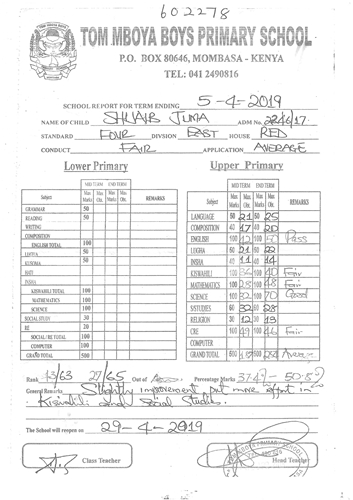 602278
TOM MBOYA BOYS PRIMARY SCHOOL
P.O. BOX 80646, MOMBASA - KENYA
TEL: 041 2490816
SCHOOL REPORT FOR TERM ENDING 5-4-2019
NAME OF CHILD SHUAIB JUMA ADM No.
STANDARD FOUR DIVSION EAST HOUSE RED
CONDUCT FAIR APPLICATION AVERAGE
Lower Primary
MID TERM END TERM
Subject Max Marks Marks Obt. Max Marks Marks Obt. REMARKS
GRAMMAR 50
READING 50
WRITING
COMPOSITION
ENGLISH TOTAL 100
LUGHA 50
KUSOMA 50
HATI
INSHA
KISWAHILI TOTAL 100
MATHEMATICS 100
SCIENCE 100
SOCIAL STUDY 30
RE 20
SOCIAL/RE TOTAL 100
COMPUTER 100
GRAND TOTAL 500
Upper Primary
MID TERM END TERM
Subject Max Marks Marks Obt. Max Marks Marks Obt. REMARKS
LANGUAGE 50 21 50 25
COMPOSITION 40 17 40 20
ENGLISH 100 42 100 50 Pass
LUGHA 50 21 50 22
INSHA 40 11 40 14
KISWAHILI 100 36 100 40 Fair
MATHEMATICS 100 28 100 48 Fair
SCIENCE 100 32 100 70 Good
S/STUDIES 60 32 60 28
RELIGION 30 12 30 13
CRE 100 49 100 46 Fair
COMPUTER
GRAND TOTAL 500 187 500 254 Average
Rank 43/63 29/65 Out of Percentage Marks
General Remarks Slightly improvement put more effort in
Kiswahili and Social Studies.
The School will reopen on 29-4-2019
Class Teacher
Head Teacher
TOM MBOYA PRIMARY SCHOOL